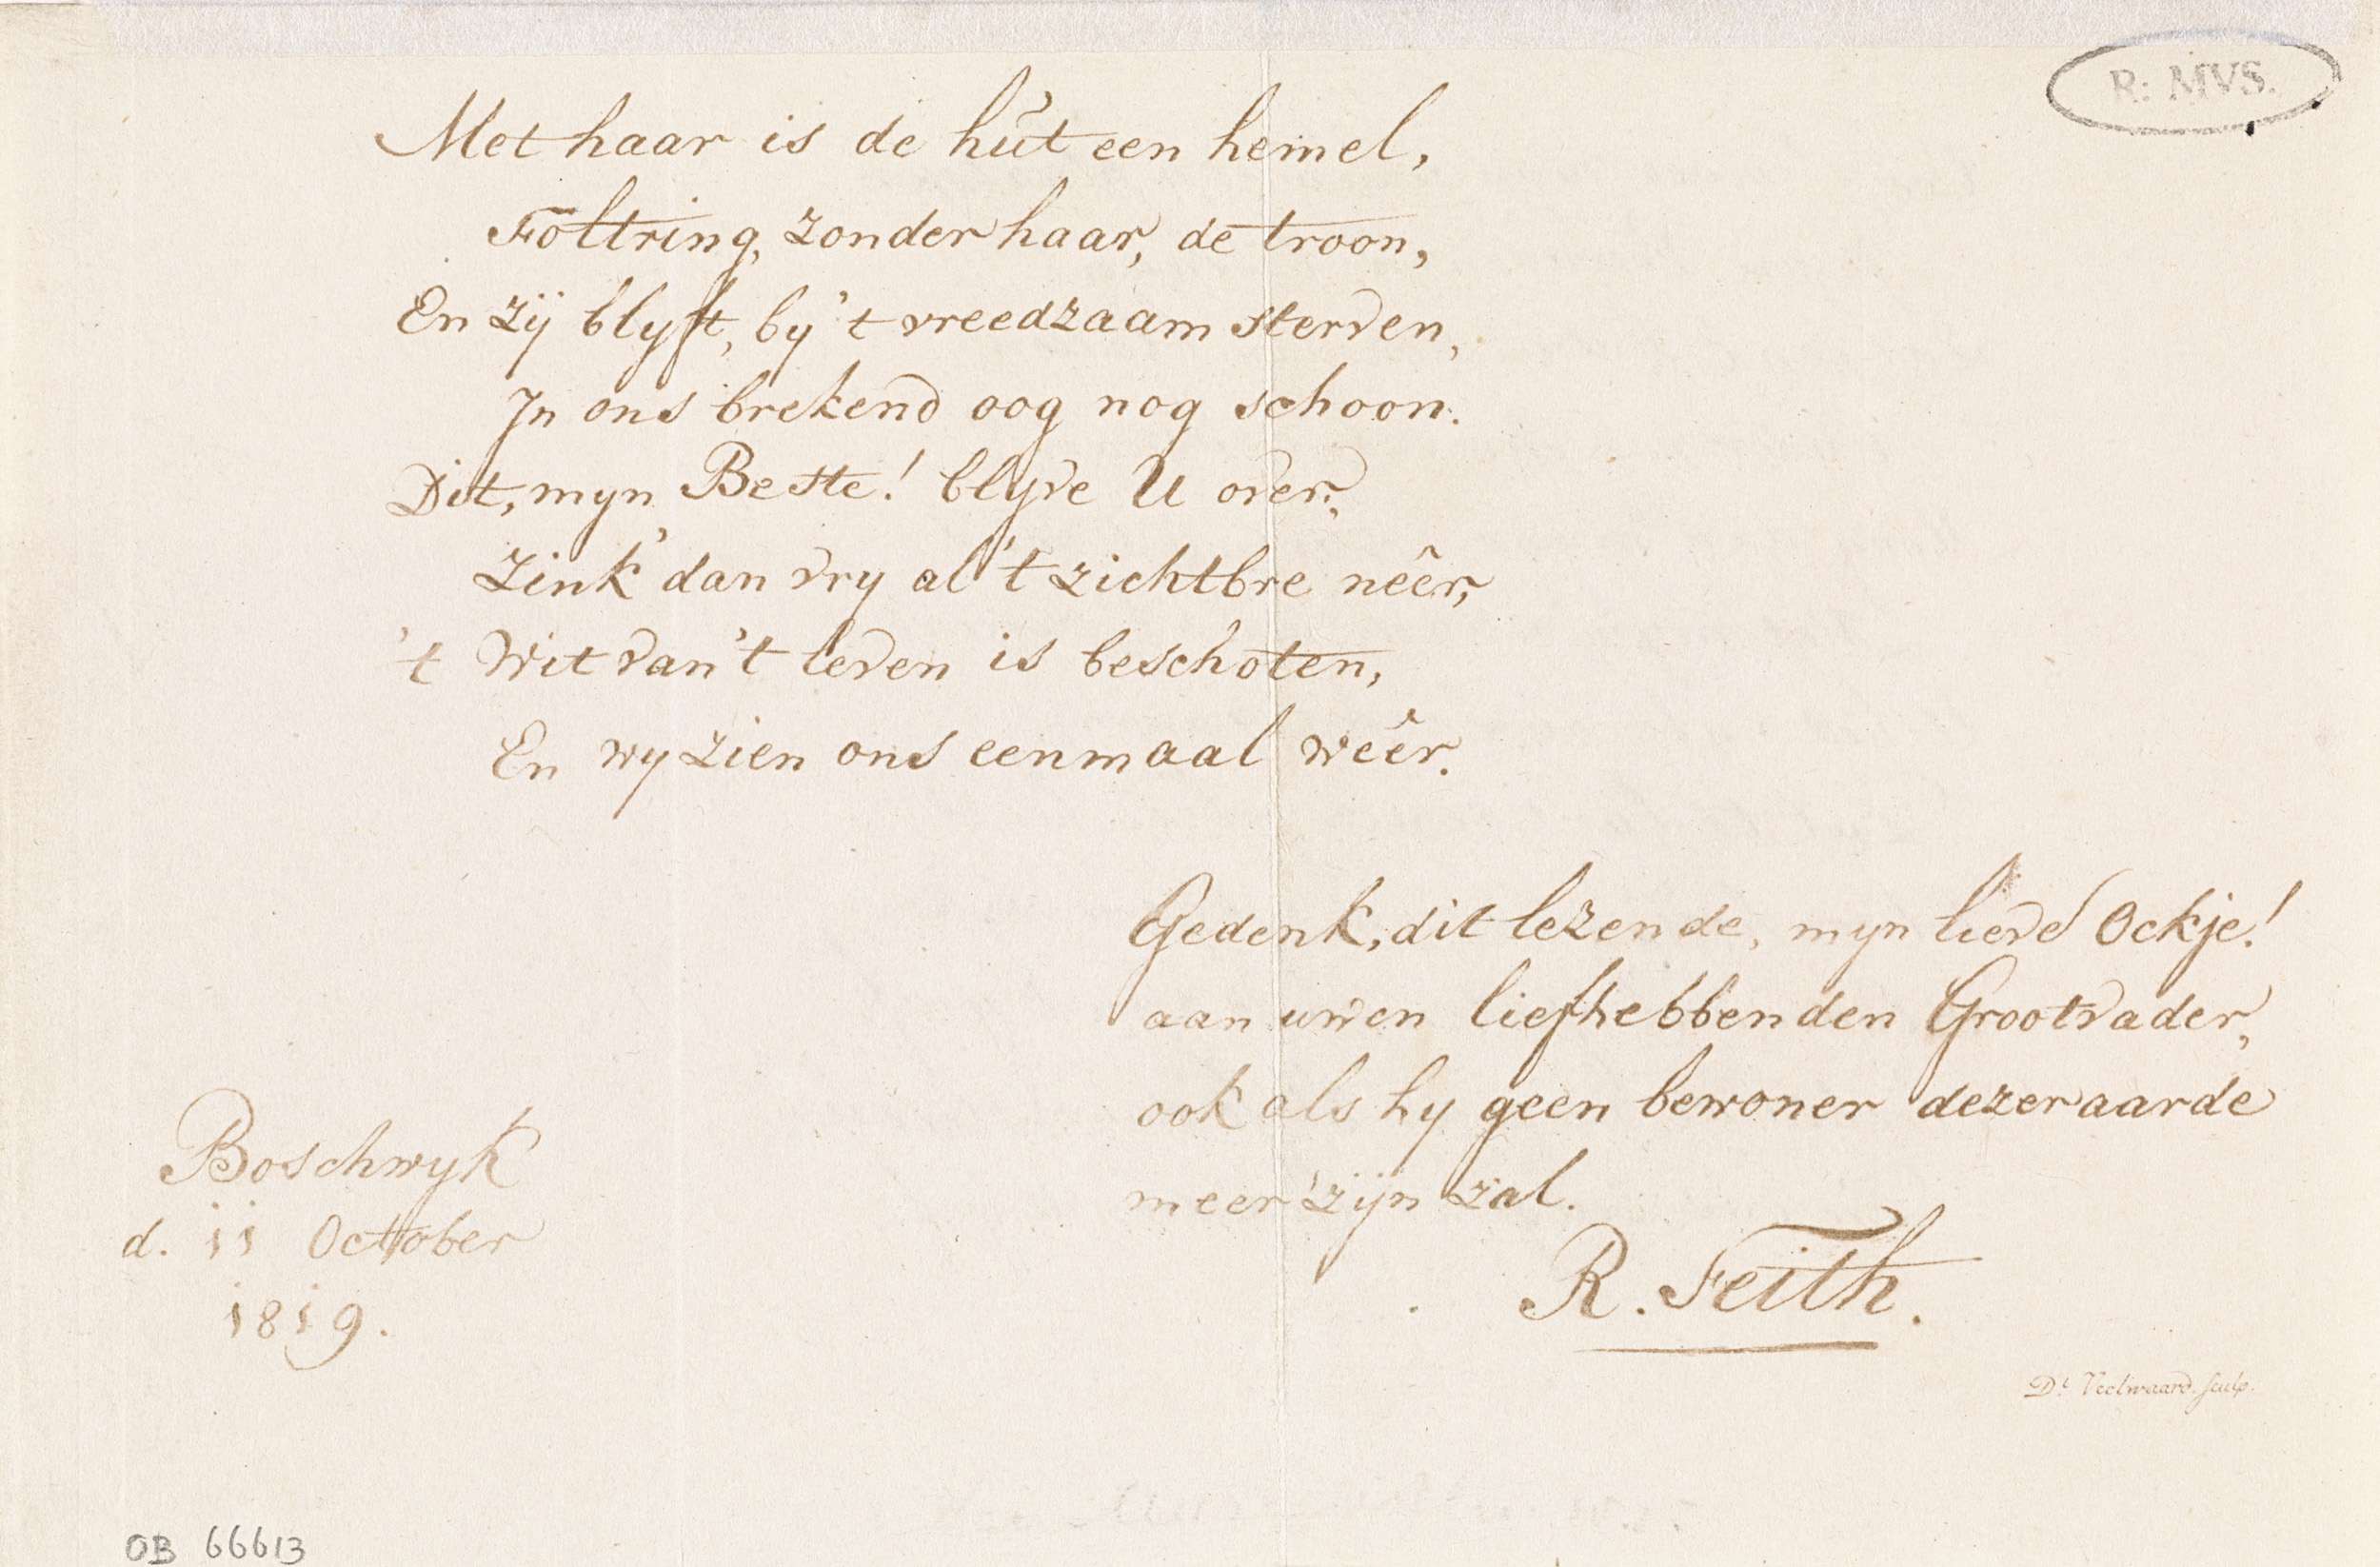 R: MVS.
Met haar is de hut een hemel,
Foltring, zonder haar, de troon,
En zij blyft, by 't vreedzaam sterven,
In ons brekend oog nog schoon.
Dit, myn Beste! blyve U over,
Zink' dan vry al 't zichtbre neêr,
't Wit van 't leven is beschoten,
En wy zien ons eenmaal wêer.
Gedenk, dit lezende, myn lieve Ockje!
aan uwen liefhebbenden Grootvader,
ook als hy geen bewoner dezer aarde
meer zijn zal.
R. Feith.
Boschwyk
d. 11 October
1819.
Dl. Veelwaard. sculp.
OB 66613